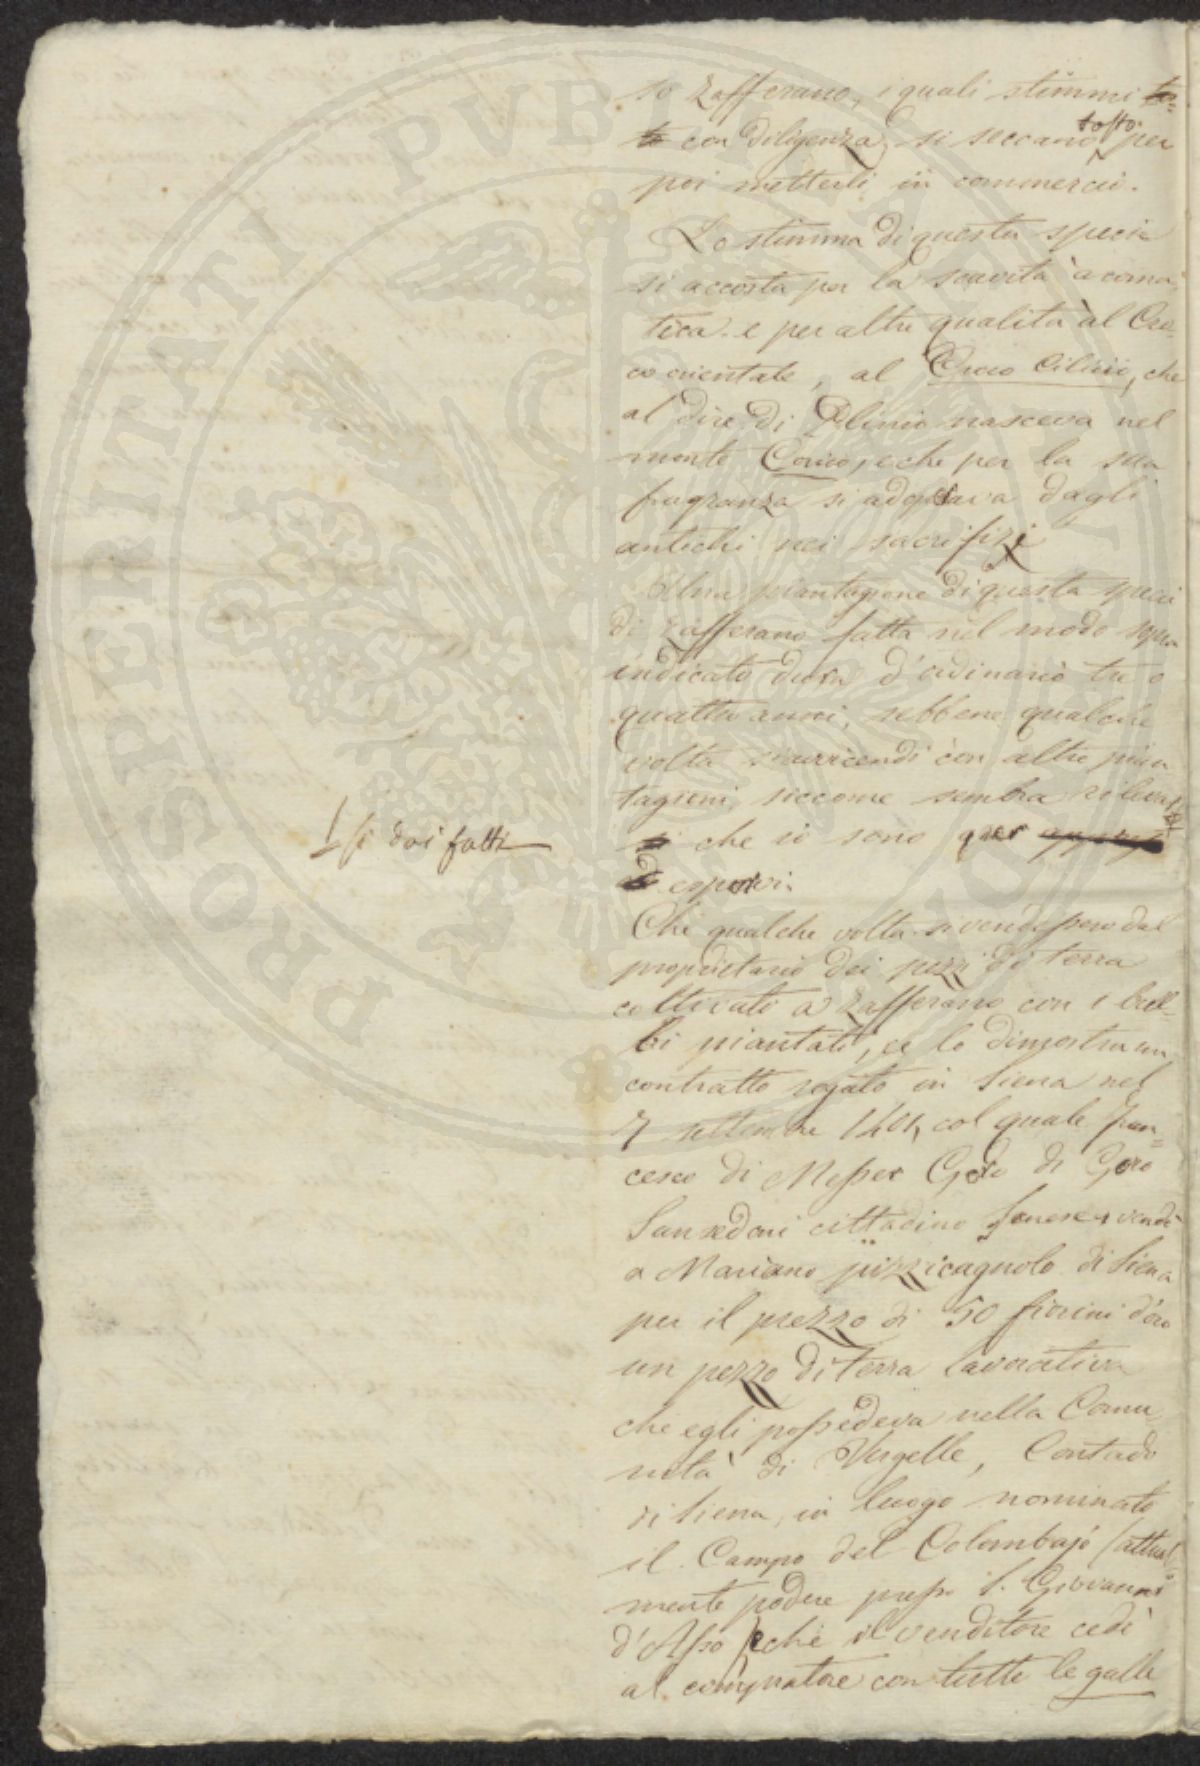 so Zafferano, i quali stimmi to=
to con diligenza, si seccano tosto per
poi metterli in commercio.
Lo stimma di questa specie
si accosta per la soavità aroma
tica e per altre qualità al Cro
co orientale, al Croco Cilicio, che
al dire di Plinio nasceva nel
monte Corico, e che per la sua
fragranza si adoprava dagli
antichi nei sacrifizi
Una piantagione di questa speci
di Zafferano fatta nel modo sopra
indicato dura d'ordinario tre o
quattro anni, sebbene qualche
volta s'avvicendi con altre pian
tagioni, siccome sembra rilevarsi
/ si dai fatti
che io sono per
esporvi.
Che qualche volta si vendesse però dal
proprietario dei pezzi di terra
coltivato a Zafferano con i bul=
bi piantati, ce lo dimostra un
contratto rogato in Siena nel
7 settembre 1401, col quale Fran=
cesco di Messer Goro di Goro
Sansedoni cittadino Senese vendè
a Mariano pizzicagnolo di Siena
per il prezzo di 50 fiorini d'oro
un pezzo di terra lavorativa
che egli possedeva nella Comu
nità di Vergelle, Contado
di Siena, in luogo nominato
il Campo del Colombajo (attual=
mente podere presso S. Giovanni
d'Asso) che il venditore cedè
al compratore con tutte le galle
PROSPERITATI PUBLICAE